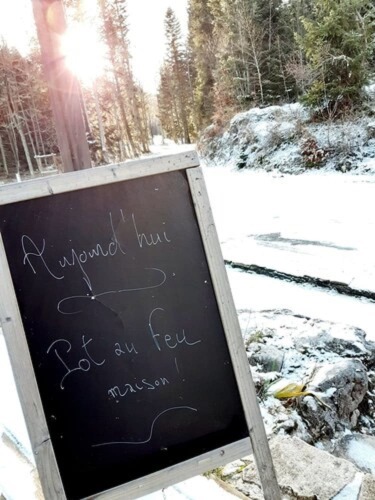 Aujourd'hui
Pot au Feu
maison !